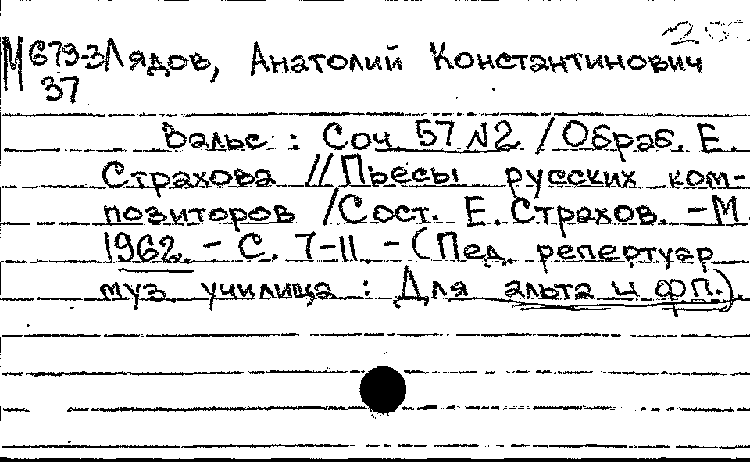 М679-3 Лядов, Анатолий Константинович
37
Вальс : Соч 57 N2 / Обраб. Е.
Страхова // Пьесы русских ком-
позиторов / Сост. Е. Страхов. - М
1962. - С. 7-11. - (Пед. репертуар
муз училища : Для альта и фп.).